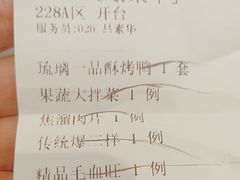 228A区 开台
服务员:026 吕素华
琉璃一品酥烤鸭 1 套
果蔬大拌菜 1 例
焦溜肉片 1 例
传统爆三样 1 例
精品毛血旺 1 例